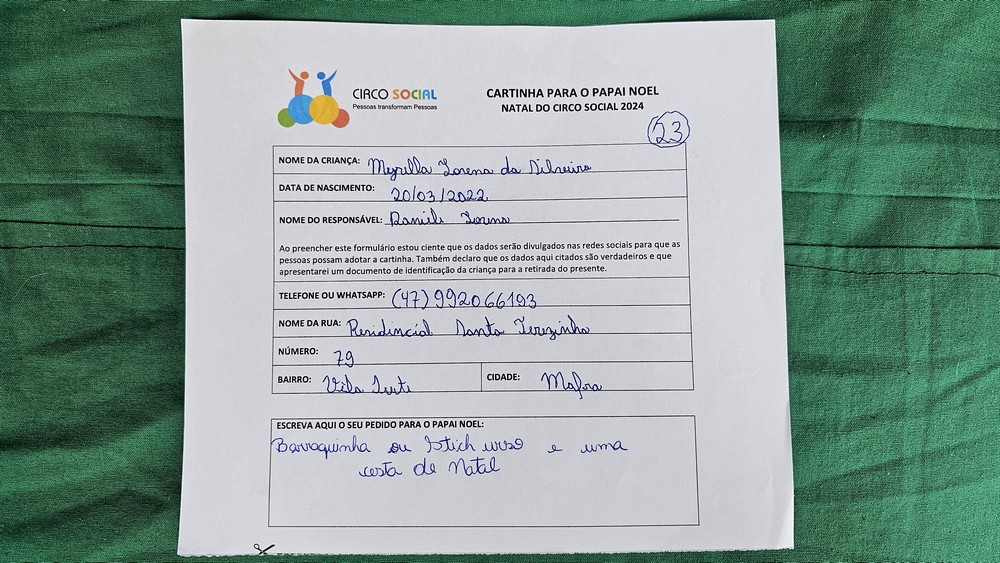 CIRCO SOCIAL
Pessoas transformam Pessoas
CARTINHA PARA O PAPAI NOEL
NATAL DO CIRCO SOCIAL 2024
23
NOME DA CRIANÇA: Meyrilla Lorena da Silveira
DATA DE NASCIMENTO: 20/03/2022
NOME DO RESPONSÁVEL: Danieli
Ao preencher este formulário estou ciente que os dados serão divulgados nas redes sociais para que as
pessoas possam adotar a cartinha. Também declaro que os dados aqui citados são verdadeiros e que
apresentarei um documento de identificação da criança para a retirada do presente.
TELEFONE OU WHATSAPP: (47) 992066193
NOME DA RUA: Residincial Santa Terezinha
NÚMERO: 79
BAIRRO: Vila
CIDADE: Mafra
ESCREVA AQUI O SEU PEDIDO PARA O PAPAI NOEL:
Barraquinha ou Stich urso e uma
cesta de Natal